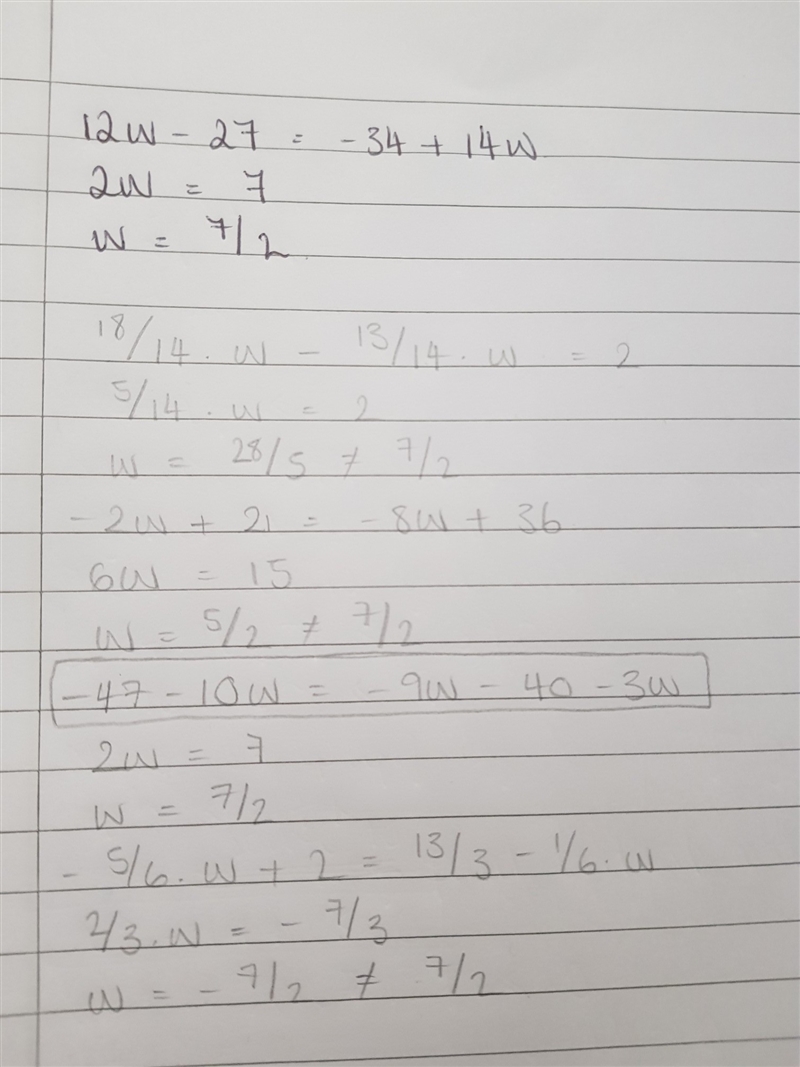 12w - 27 = -34 + 14w
2w = 7
w = 7/2
18/14 . w - 13/14 . w = 2
5/14 . w = 2
w = 28/5 ≠ 7/2
-2w + 21 = -8w + 36
6w = 15
w = 5/2 ≠ 7/2
-47 - 10w = -9w - 40 - 3w
2w = 7
w = 7/2
- 5/6 . w + 2 = 13/3 - 1/6 . w
2/3 . w = - 7/3
w = - 7/2 ≠ 7/2